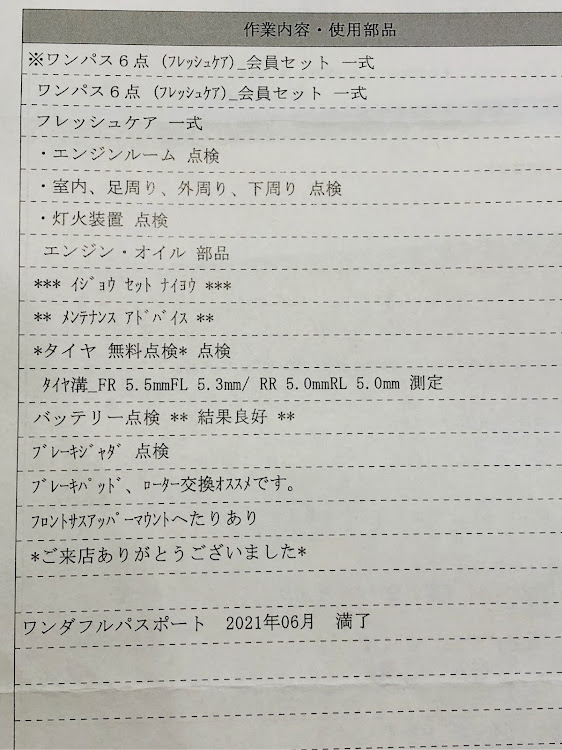 作業内容・使用部品
※ワンパス６点 (ﾌﾚｯｼｭｹｱ)_会員セット 一式
ワンパス６点 (ﾌﾚｯｼｭｹｱ)_会員セット 一式
フレッシュケア 一式
・エンジンルーム 点検
・室内、足周り、外周り、下周り 点検
・灯火装置 点検
エンジン・オイル 部品
*** ｲｼﾞｮｳ ｾｯﾄ ﾅｲﾖｳ ***
** ﾒﾝﾃﾅﾝｽ ｱﾄﾞﾊﾞｲｽ **
*タイヤ 無料点検* 点検
ﾀｲﾔ溝_FR 5.5mmFL 5.3mm/ RR 5.0mmRL 5.0mm 測定
バッテリー点検 ** 結果良好 **
ﾌﾞﾚｰｷｼﾞｬﾀﾞ 点検
ﾌﾞﾚｰｷﾊﾟｯﾄﾞ、ﾛｰﾀｰ交換ｵｽｽﾒです。
ﾌﾛﾝﾄｻｽｱｯﾊﾟｰﾏｳﾝﾄへたりあり
*ご来店ありがとうございました*
ワンダフルパスポート　2021年06月　満了